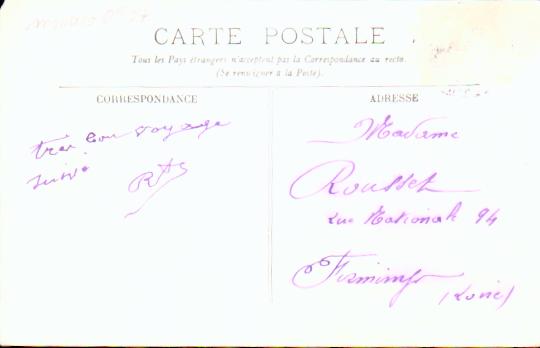 CARTE POSTALE
Tous les Pays étrangers n'acceptent pas la Correspondance au recto.
(Se renseigner à la Poste).
CORRESPONDANCE
ADRESSE
très bon voyage
Madame
Rousset
rue Nationale 94
Firminy
(Loire)